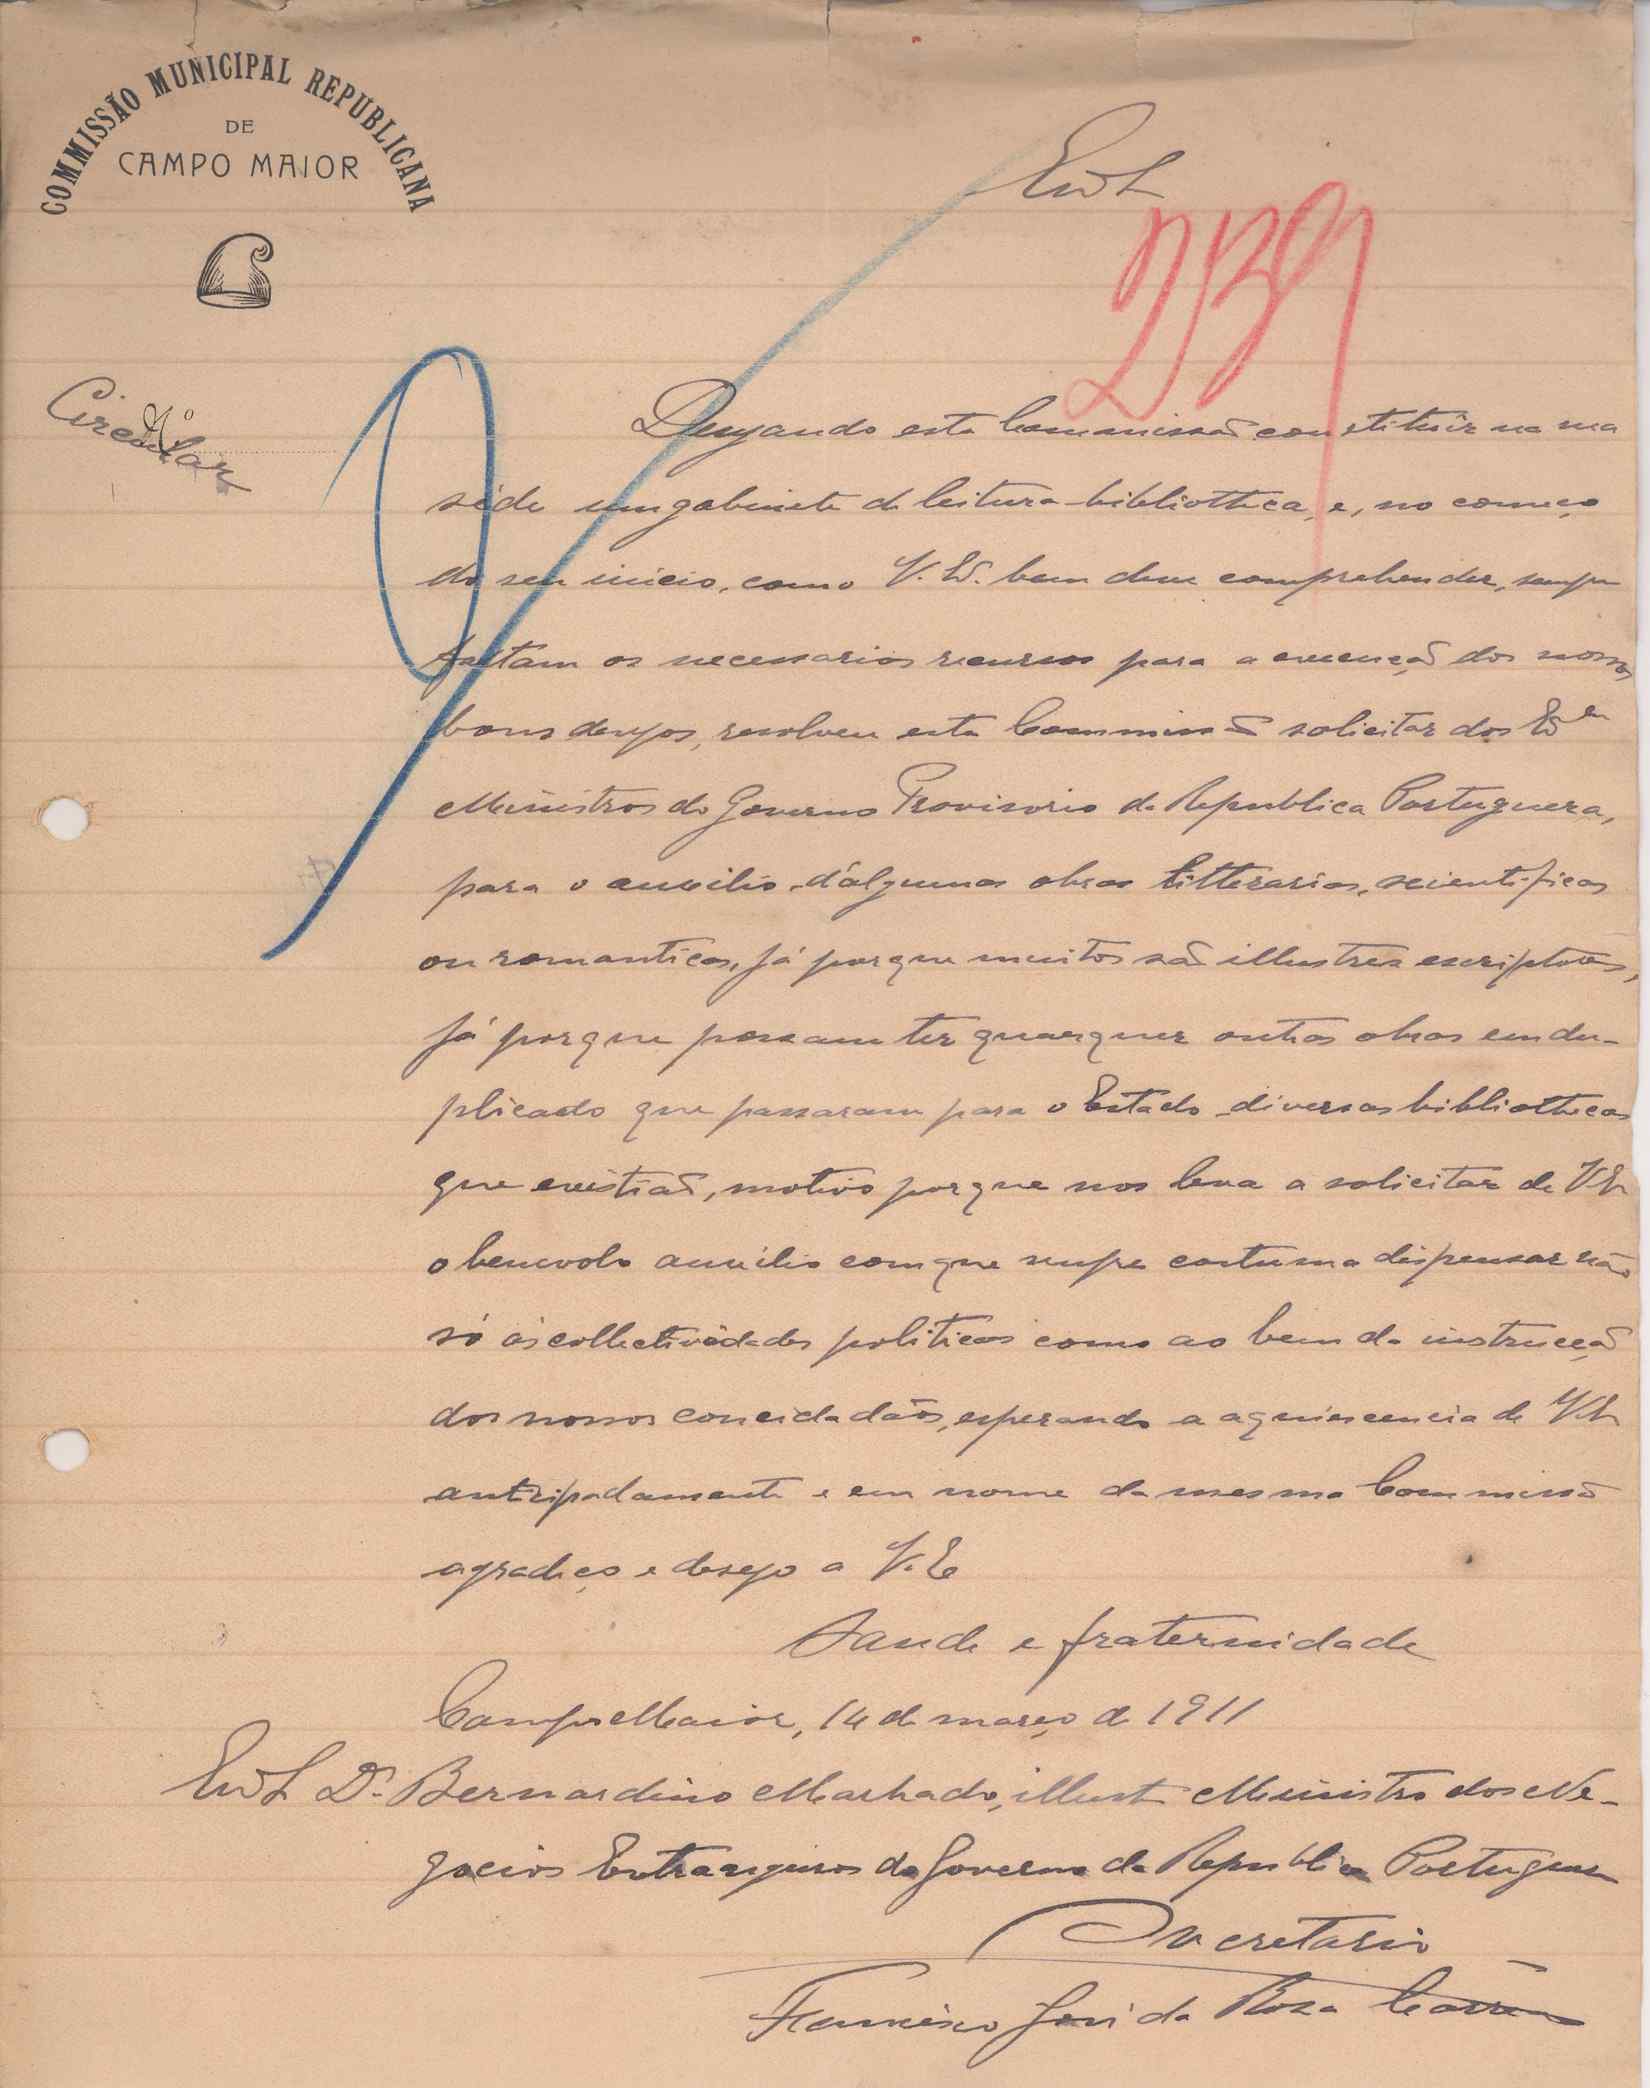 COMMISSÃO MUNICIPAL REPUBLICANA
DE
CAMPO MAIOR
Nº
Circular
Desejando esta Commissão constituir na sua
séde um gabinete de leitura-bibliotheca, e, no começo
do seu inicio, como V. Ex. bem deve comprehender, sempre
faltam os necessarios recursos para a execução dos nossos
bons desejos, resolveu esta Commissão solicitar dos
Ministros do Governo Provisorio da Republica Portugueza,
para o auxilio d'algumas obras litterarias, scientificas
ou romanticas, já porque muitos são illustres escriptores,
já porque possam ter quaesquer outras obras em du-
plicado que passaram para o Estado diversas bibliothecas
que existiaõ, motivo porque nos leva a solicitar de V. Ex
o benevolo auxilio com que sempre costuma dispensar não
só ás collectividades politicas como ao bem da instrucção
dos nossos concidadãos, esperando a aquiescencia de V. Ex
antecipadamente e em nome da mesma Commissão
agradeço e desejo a V. E
Saude e fraternidade
Campo Maior, 14 de março de 1911
Dr. Bernardino Machado, illustre Ministro dos Ne-
gocios Extrangeiros do Governo da Republica Portugueza
O Secretario
Francisco José da Roza